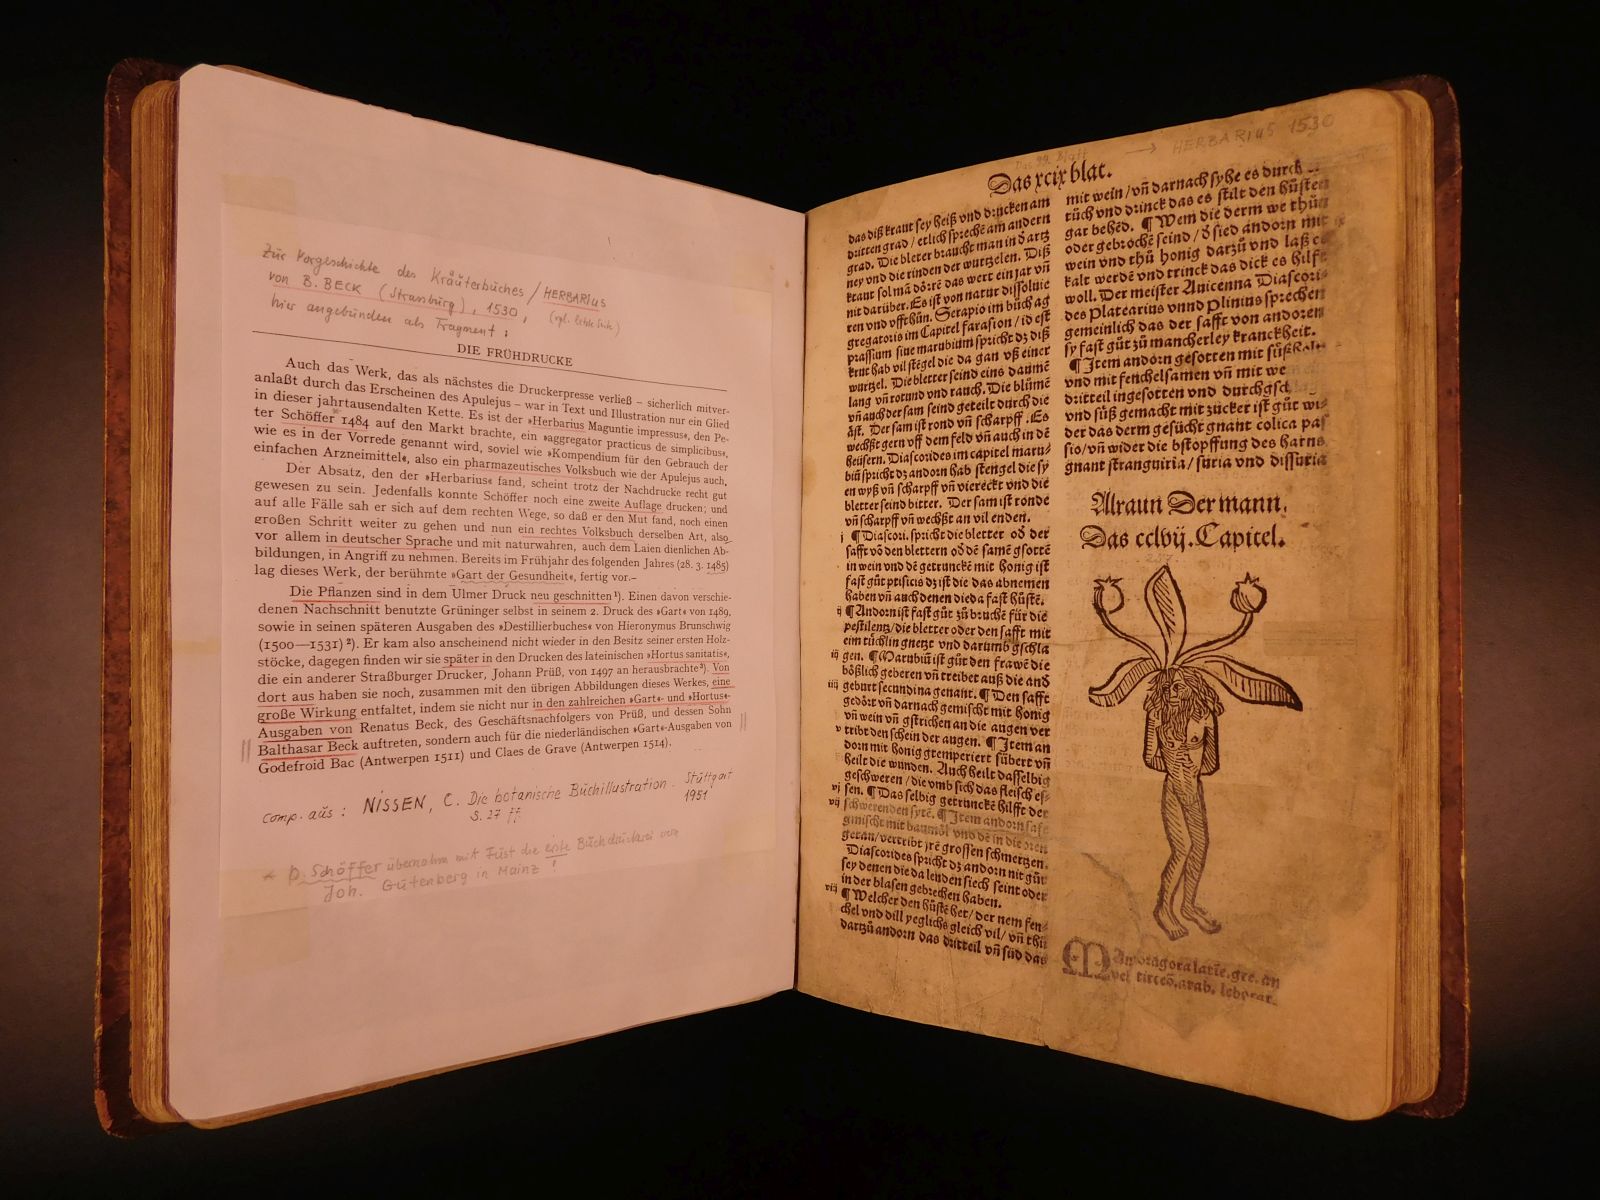 Zur Vorgeschichte des Kräuterbuches / HERBARIUS
von B. BECK (Strassburg), 1530, (vgl. letzte Seite)
hier angebunden als Fragment:
DIE FRÜHDRUCKE
Auch das Werk, das als nächstes die Druckerpresse verließ – sicherlich mitver-
anlaßt durch das Erscheinen des Apulejus – war in Text und Illustration nur ein Glied
in dieser jahrtausendalten Kette. Es ist der »Herbarius Maguntie impressus«, den Pe-
ter Schöffer* 1484 auf den Markt brachte, ein »aggregator practicus de simplicibus«,
wie es in der Vorrede genannt wird, soviel wie »Kompendium für den Gebrauch der
einfachen Arzneimittel«, also ein pharmazeutisches Volksbuch wie der Apulejus auch.
Der Absatz, den der »Herbarius« fand, scheint trotz der Nachdrucke recht gut
gewesen zu sein. Jedenfalls konnte Schöffer noch eine zweite Auflage drucken; und
auf alle Fälle sah er sich auf dem rechten Wege, so daß er den Mut fand, noch einen
großen Schritt weiter zu gehen und nun ein rechtes Volksbuch derselben Art, also
vor allem in deutscher Sprache und mit naturwahren, auch dem Laien dienlichen Ab-
bildungen, in Angriff zu nehmen. Bereits im Frühjahr des folgenden Jahres (28. 3. 1485)
lag dieses Werk, der berühmte »Gart der Gesundheit«, fertig vor.–
Die Pflanzen sind in dem Ulmer Druck neu geschnitten¹). Einen davon verschie-
denen Nachschnitt benutzte Grüninger selbst in seinem 2. Druck des »Gart« von 1489,
sowie in seinen späteren Ausgaben des »Destillierbuches« von Hieronymus Brunschwig
(1500—1531)²). Er kam also anscheinend nicht wieder in den Besitz seiner ersten Holz-
stöcke, dagegen finden wir sie später in den Drucken des lateinischen »Hortus sanitatis«,
die ein anderer Straßburger Drucker, Johann Prüß, von 1497 an herausbrachte³). Von
dort aus haben sie noch, zusammen mit den übrigen Abbildungen dieses Werkes, eine
große Wirkung entfaltet, indem sie nicht nur in den zahlreichen »Gart«- und »Hortus«-
Ausgaben von Renatus Beck, des Geschäftsnachfolgers von Prüß, und dessen Sohn
Balthasar Beck auftreten, sondern auch für die niederländischen »Gart«-Ausgaben von
Godefroid Bac (Antwerpen 1511) und Claes de Grave (Antwerpen 1514).
comp. aus: NISSEN, C. Die botanische Buchillustration. Stuttgart
S. 27 ff 1951
* P. Schöffer übernahm mit Fust die erste Buchdruckerei von
Joh. Gutenberg in Mainz!
Das 99. Blatt → HERBARIUS 1530
Das xcix blat.
das diß kraut sey heiß vnd drucken am
dritten grad / etlich sprechē am andern
grad. Die bleter braucht man in ď artz
ney vnd die rinden der wurtzelen. Diß
kraut sol mā dörrē das wert ein jar vñ
nit darüber. Es ist von natur dissoluie
ren vnd vffthůn. Serapio im bůch ag
gregatoris im Capitel farasion / id est
prassium siue marubium spricht dz diß
krut hab vil stēgel die da gan vß einer
wurtzel. Die bletter seind eins daumē
lang vñ rotund vnd rauch. Die blůmē
vñ auch der sam seind geteilt durch die
äst. Der sam ist rond vñ scharpff. Es
wechßt gern vff dem feld vñ auch in dē
heüsern. Diascorides im capitel maru-
biū spricht dz andorn hab stengel die sy
en wyß vñ scharpff vñ viereckt vnd die
bletter seind bitter. Der sam ist ronde
vñ scharpff vñ wechßt an vil enden.
j ¶ Diascori. spricht die bletter oď der
safft vō den blettern oď dē samē gsottē
in wein vnd dē getrunckē mit honig ist
fast gůt ptisicis dz ist die das abnemen
haben vñ auch denen die da fast hůstē.
ij ¶ Andorn ist fast gůt zů bruchē für die
pestilentz / die bletter oder den safft mit
eim tůchlin gnetzt vnd darumb gschla
iij gen. ¶ Marubiū ist gůt den frawē die
bößlich geberen vñ treibet auß die and
iiij geburt secundina genant. ¶ Den safft
gedört vñ darnach gemischt mit honig
vñ wein vñ gstrichen an die augen ver
v tribt den schein der augen. ¶ Item an
dorn mit honig gtemperiert sübert vñ
heilt die wunden. Auch heilt dasselbig
geschweren / die vmb sich das fleisch es-
vj sen. ¶ Das selbig getrunckē hilfft der
vij schwerenden sytē. ¶ Item andorn safft
gmischt mit baumöl vnd dē in die oren
getan / vertribt jre grossen schmertzen.
Diascorides spricht dz andorn nit gůt
sey denen die da lenden siech seint oder
in der blasen gebrechen haben.
viij ¶ Welcher den hůstē het / der nem fen-
chel vnd dill yegliche gleich vil / vñ thů
dartzů andorn das dritteil vñ süd das
mit wein / vñ darnach syhe es durch
tůch vnd drinck das es stilt den hůsten
gar behēd. ¶ Wem die derm we thůn
oder gebrochē seind / ď sied andorn mit
wein vnd thů honig dartzů vnd laß
kalt werdē vnd trinck das dick es hilfft
woll. Der meister Auicenna Diascori-
des Platearius vnnd Plinius sprechen
gemeinlich das der safft von andorn
sy fast gůt zů mancherley kranckheit.
¶ Item andorn gesotten mit
und mit fenchelsamen vñ mit
dritteil ingesotten vnd durch
vnd süß gemacht mit zucker ist gůt wi-
der das derm gesücht gnant colica pas
sio / vñ wider die bstopffung des harns
gnant stranguiria / suria vnd dissuria
Alraun Der mann.
Das cclvij. Capitel.
257
MAndragora latīe. gre. an
vel tirceō. arab.